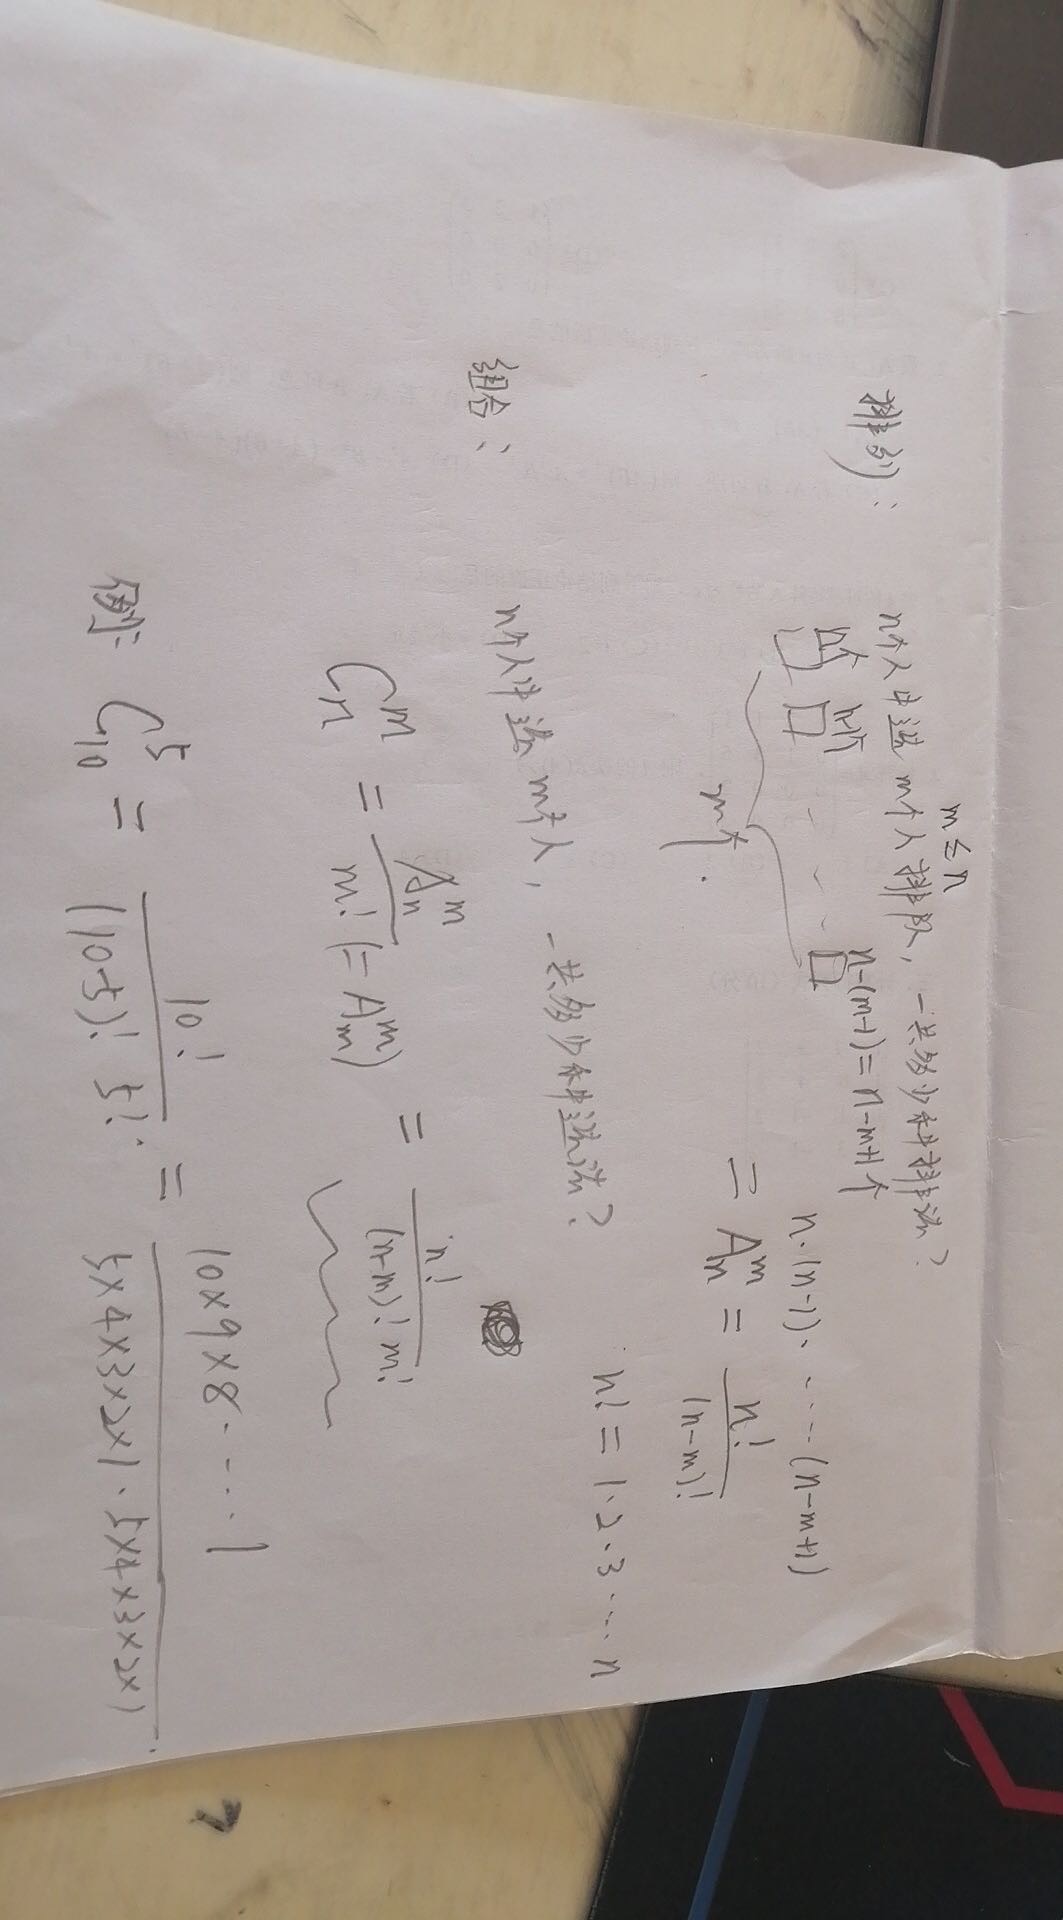 m≤n
排列： n个人中选 m个人排队，一共多少种排法？
n个 n-1个 n-(m-1)=n-m+1个
□ □ - - - □
m个.
n·(n-1)· ···· (n-m+1)
= Aₙᵐ = n!/(n-m)!
n! = 1·2·3 ··· n
组合： n个人中选 m个人，一共多少种选法？
Cₙᵐ = Aₙᵐ/m! (= Aₘᵐ) = n!/(n-m)! m!
例: C₁₀⁵ = 10!/(10-5)! 5!. = 10×9×8 ···· 1/5×4×3×2×1 · 5×4×3×2×1